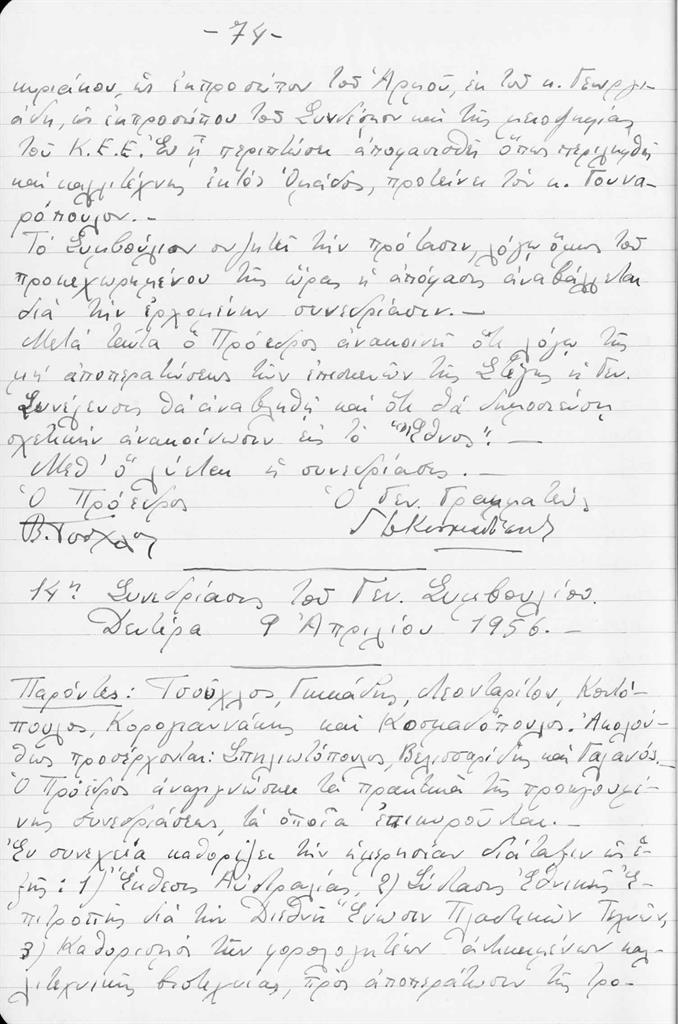 -74-
κυριάκου, ὡς ἐκπροσώπου τοῦ Ἁρμοῦ, ἐκ τοῦ κ. Γεωργι-
άδη, ὡς ἐκπροσώπου τοῦ Συνδέσμου καὶ τῆς μειοψηφίας
τοῦ Κ.Ε.Ε. Ἐν ᾗ περιπτώσει ἀποφασισθῇ ὅπως περιληφθῇ
καὶ καλλιτέχνης ἐκτὸς Ὁμάδος, προτείνει τὸν κ. Γουνα-
ρόπουλον. —
Τὸ Συμβούλιον συζητεῖ τὴν πρότασιν, λόγῳ ὅμως τοῦ
προκεχωρημένου τῆς ὥρας ἡ ἀπόφασις ἀναβάλλεται
διὰ τὴν ἐρχομένην συνεδρίασιν. —
Μετὰ ταῦτα ὁ Πρόεδρος ἀνακοινοῖ ὅτι λόγῳ τῆς
μὴ ἀποπερατώσεως τῶν ἐπισκευῶν τῆς Στέγης ἡ Γεν.
Συνέλευσις θὰ ἀναβληθῇ καὶ ὅτι θὰ δημοσιεύσῃ
σχετικὴν ἀνακοίνωσιν εἰς τὸ "Ἔθνος". —
Μεθ' ὃ λύεται ἡ συνεδρίασις. —
Ὁ Πρόεδρος Ὁ Γεν. Γραμματεύς
Β. Τσοῦχλος
14η Συνεδρίασις τοῦ Γεν. Συμβουλίου.
Δευτέρα 9 Ἀπριλίου 1956. —
Παρόντες: Τσοῦχλος, Γιαννάδης, Λεονταρίτου, Κοτό-
πουλος, Κορογιαννάκης καὶ Κοσμαδόπουλος. Ἀκολού-
θως προσέρχονται: Σπηλιωτόπουλος, Βελισσαρίδης καὶ Γαλανός. —
Ὁ Πρόεδρος ἀναγιγνώσκει τὰ πρακτικὰ τῆς προηγουμέ-
νης συνεδριάσεως, τὰ ὁποῖα ἐπικυροῦνται. —
Ἐν συνεχείᾳ καθορίζει τὴν ἡμερησίαν διάταξιν ὡς ἑ-
ξῆς: 1) Ἔκθεσις Αὐστραλίας, 2) Σύστασις Ἐθνικῆς Ἐ-
πιτροπῆς διὰ τὴν Διεθνῆ Ἕνωσιν Πλαστικῶν Τεχνῶν,
3) Καθορισμὸς τῶν φορολογητέων ἀντικειμένων καλ-
λιτεχνικῆς βιοτεχνίας, πρὸς ἀποπεράτωσιν τῆς τρο-